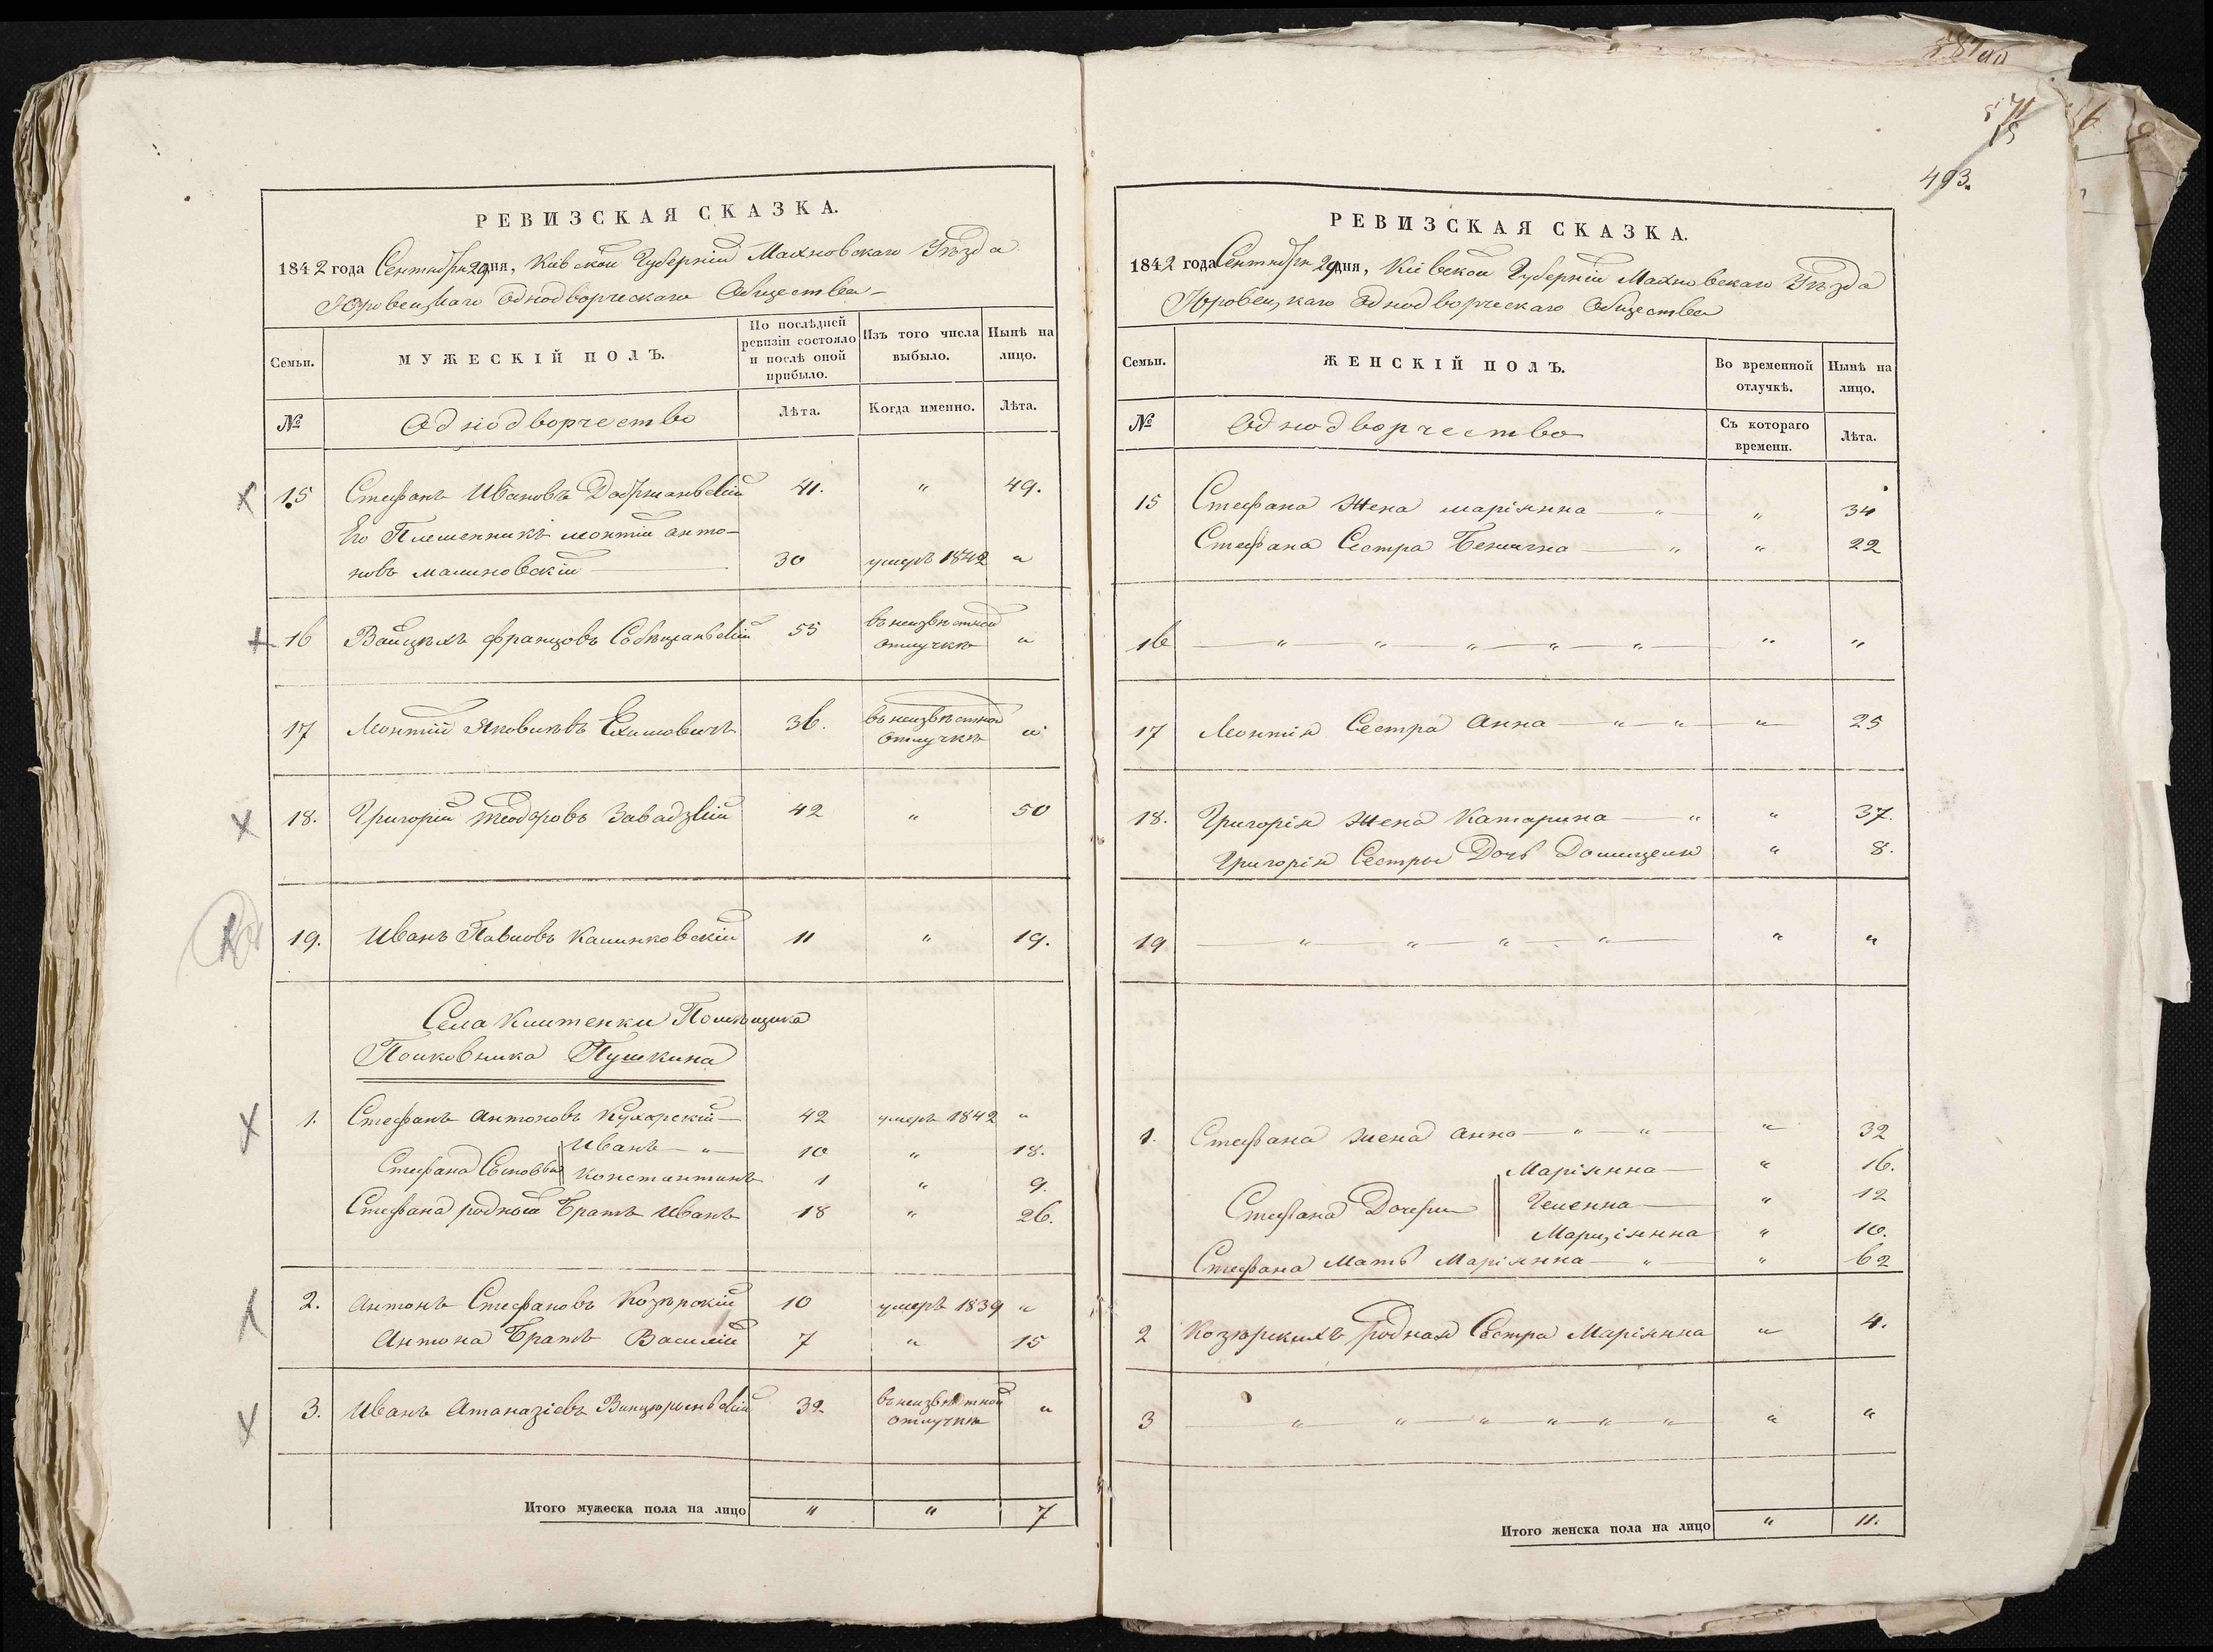 РЕВИЗСКАЯ СКАЗКА.
1842 года Сентября 29 дня, Кіевской Губерніи Махновскаго Уѣзда
Юровецкаго Однодворческаго Общества
Семьи.
МУЖЕСКІЙ ПОЛЪ.
По послѣдней ревизіи состояло и послѣ оной прибыло.
Изъ того числа выбыло.
Нынѣ на лицо.
№
Однодворчество
Лѣта.
Когда именно.
Лѣта.
15 Стефанъ Ивановъ 41. " 49.
Его Племенникъ Леонтій Анто-
новъ Малиновскій 30 умеръ 1842 "
16 Войцѣхъ Францовъ 55 въ неизвѣстной отлучкѣ "
17 Леонтій 36. въ неизвѣстной отлучкѣ "
18. Григорій Теодоровъ Завадзкій 42 " 50
19. Иванъ Павловъ Калинковскій 11 " 19.
Села Клитенки Помѣщика
Полковника Пушкина
1. Стефанъ Антоновъ Кухарскій 42 умеръ 1842 "
Стефана Сыновья Иванъ " 10 " 18.
Константинъ 1 " 9.
Стефана родной Братъ Иванъ 18 " 26.
2. Антонъ Стефановъ Козѣрскій 10 умеръ 1839 "
Антона Братъ Василій 7 " 15
3. Иванъ Атаназіевъ 39 въ неизвѣстной отлучкѣ "
Итого мужеска пола на лицо " " 7
571
493.
РЕВИЗСКАЯ СКАЗКА.
1842 года Сентября 29 дня, Кіевской Губерніи Махновскаго Уѣзда
Юровецкаго Однодворческаго Общества
Семьи.
ЖЕНСКІЙ ПОЛЪ.
Во временной отлучкѣ.
Нынѣ на лицо.
№
Однодворчество
Съ котораго времени.
Лѣта.
15 Стефана Жена Маріянна " " 34
Стефана Сестра " " 22
16 " " " " " " "
17 Леонтія Сестра Анна " " " 25
18. Григорія Жена Катарина " " 37.
Григорія Сестры Дочь Домицеля " 8.
19 " " " " " "
1. Стефана жена Анна " " " 32
Стефана Дочери Маріянна " 16.
Гелена " 12
Марціянна " 10.
Стефана Мать Маріянна " " 62
2 Козѣрскихъ родная Сестра Маріянна " 4.
3 " " " " " " " "
Итого женска пола на лицо " 11.